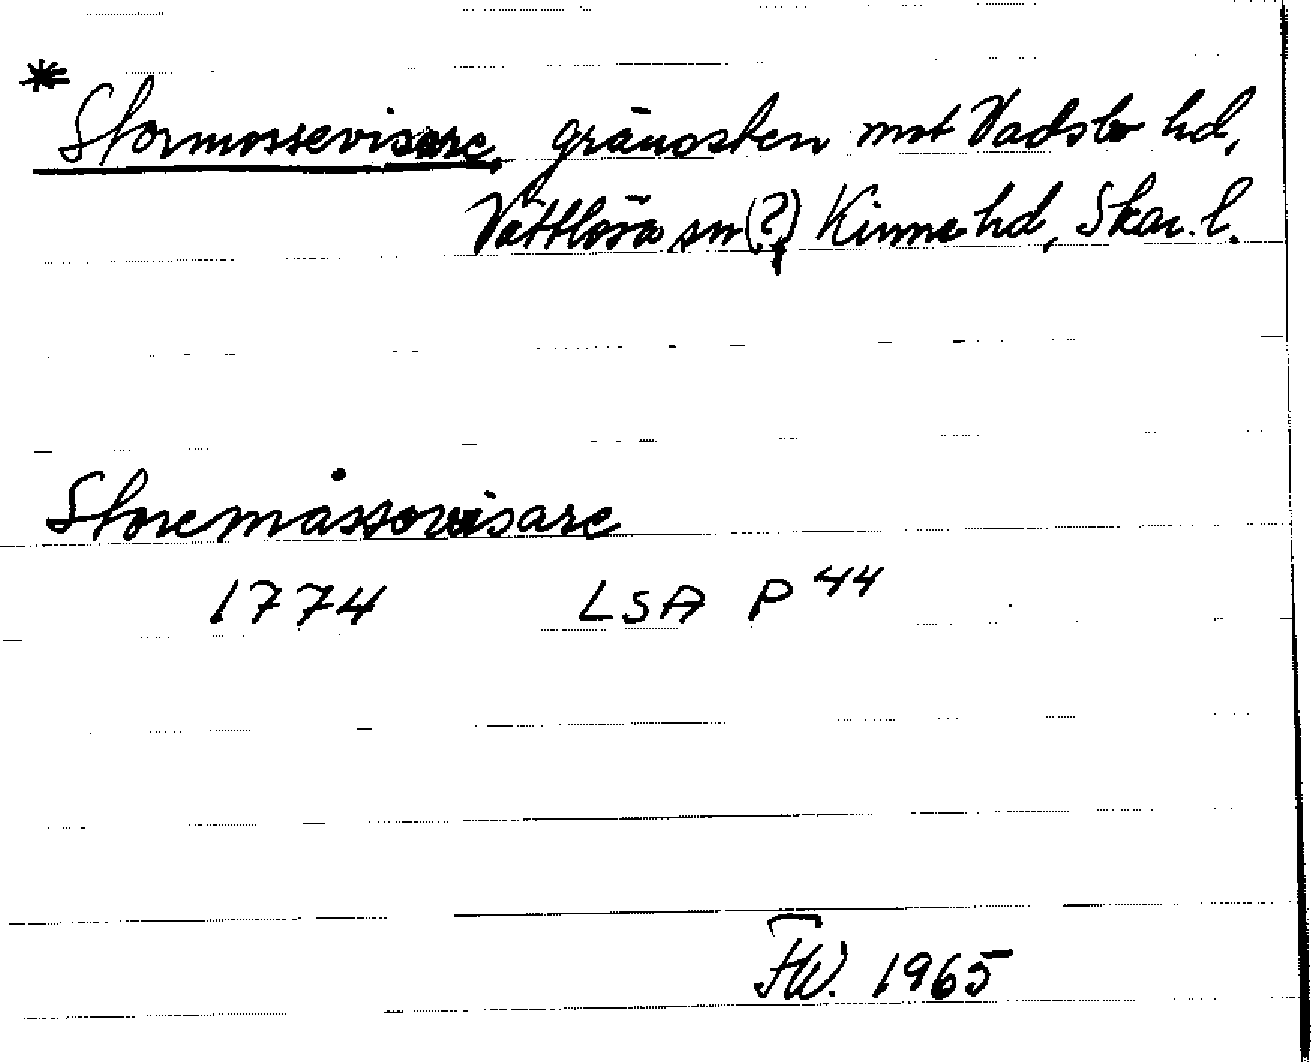 * Stormossevisare, gränssten mot Vadsbo hd,
Vättlösa sn (?), Kinne hd, Skar. l.
Storemåssovisare
1774 LSA P 44
FW. 1965